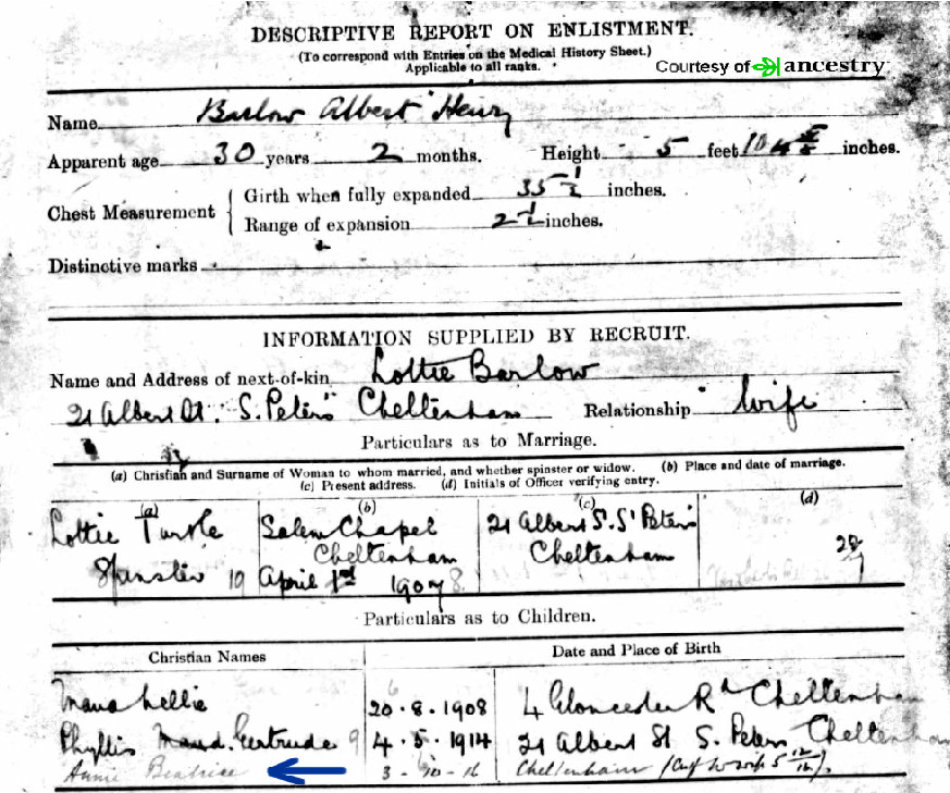 DESCRIPTIVE REPORT ON ENLISTMENT.
(To correspond with Entries on the Medical History Sheet.)
Applicable to all ranks.
Courtesy of ancestry
Name Barlow Albert Henry
Apparent age 30 years 2 months. Height 5 feet inches.
Chest Measurement { Girth when fully expanded 35 1/2 inches.
Range of expansion 2 1/2 inches.
Distinctive marks
INFORMATION SUPPLIED BY RECRUIT.
Name and Address of next-of-kin Lottie Barlow
21 Albert St. S. Peters Cheltenham Relationship Wife
Particulars as to Marriage.
(a) Christian and Surname of Woman to whom married, and whether spinster or widow. (b) Place and date of marriage.
(c) Present address. (d) Initials of Officer verifying entry.
(a) (b) (c) (d)
Lottie Salem Chapel 21 Albert S. St Peters
Cheltenham Cheltenham
Spinster April 190
Particulars as to Children.
Christian Names Date and Place of Birth
Nellie 20.8.1908 4 Gloucester Rd Cheltenham
Phyllis Maud. Gertrude 4.5.1914 21 Albert St S. Peters Cheltenham
Annie Beatrice 3-10-16 Cheltenham